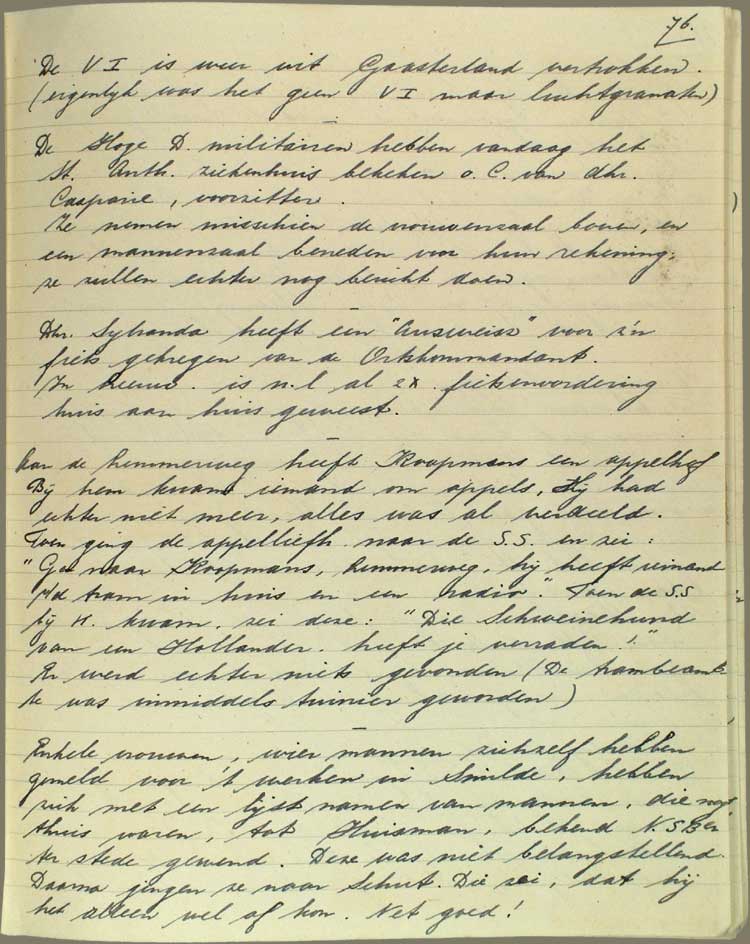 76.
De V I is weer uit Gaasterland vertrokken.
(eigenlijk was het geen V I maar luchtgranaten)
De Hoge D. militairen hebben vandaag het
St. Anth. ziekenhuis bekeken o. C. van dhr.
Casparie, voorzitter.
Ze nemen misschien de vrouwenzaal boven, en
een mannenzaal beneden voor hun rekening;
ze zullen echter nog bericht doen.
Dhr. Sybranda heeft een "Ausweiss" voor z'n
fiets gekregen van de Ortskommandant.
In Leeuw. is n.l al 2x. fietsenvordering
huis aan huis geweest.
Aan de Lemmerweg heeft Koopmans een appelhof
Bij hem kwam iemand om appels, Hij had
echter niet meer, alles was al verdeeld.
Toen ging de appelliefh. naar de S.S. en zei:
"Ga naar Koopmans, Lemmerweg, hij heeft iemand
v/d tram in huis en een radio". Toen de S.S
bij K. kwam, zei deze: "Die Schweinehund
van een Hollander heeft je verraden!"
Er werd echter niets gevonden (De trambeamb-
te was inmiddels tuinier geworden)
Enkele vrouwen, wier mannen zichzelf hebben
gemeld voor 't werken in Smilde, hebben
zich met een lijst namen van mannen, die nog
thuis waren, tot Huisman, bekend N.S.B er
ter stede gewend. Deze was niet belangstellend.
Daarna gingen ze naar Schut. Die zei, dat hij
het alleen wel af kon. Net goed!